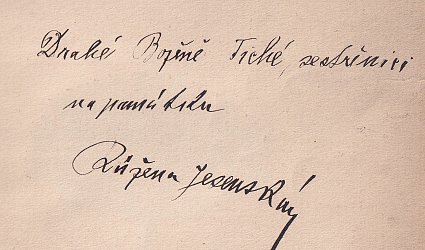 Drahé Boženě Tiché, sestřenici
na památku
Růžena Jesenská